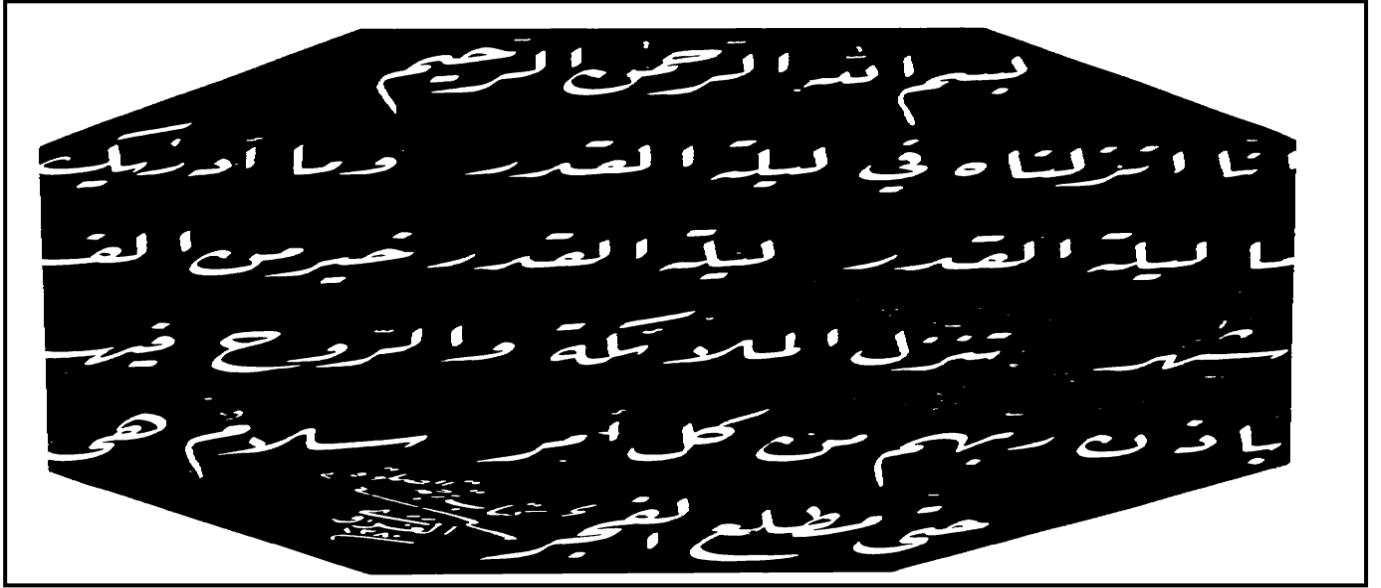 بسم الله الرّحمن الرّحيم
انّا انزلناه في ليلة القدر وما أدرىك
ما ليلة القدر ليلة القدر خير من الف
شهر تنزّل الملائكة والرّوح فيها
باذن ربّهم من كل أمر سلامٌ هى
حتى مطلع الفجر